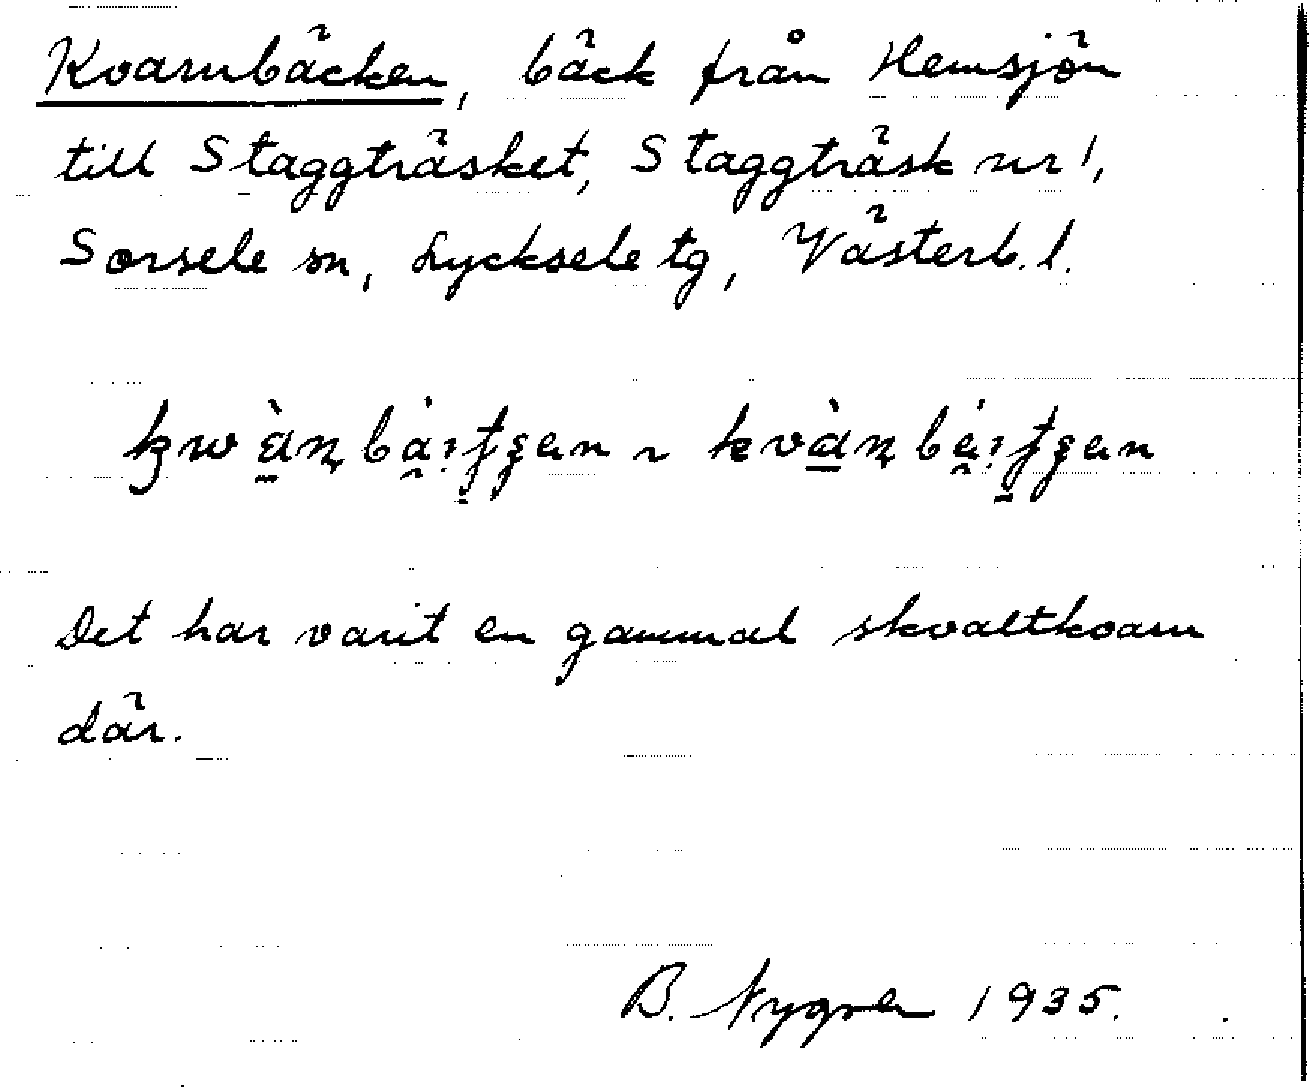 Kvarnbäcken, bäck från Hemsjön
till Staggträsket, Staggträsk nr 1,
Sorsele sn, Lycksele tg, Västerb. l.
Det har varit en gammal skvaltkvarn
där.
B. Nygren 1935.